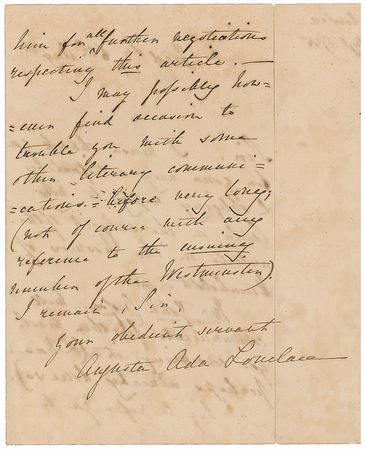 him for all further negotiations
respecting this article. —
I may possibly how=
=ever find occasion to
trouble you with some
other literary communi=
=cations = before very long;
(not of course with any
reference to the ensuing
number of the Westminster).
I remain, Sir,
Your obedient servant
Augusta Ada Lovelace